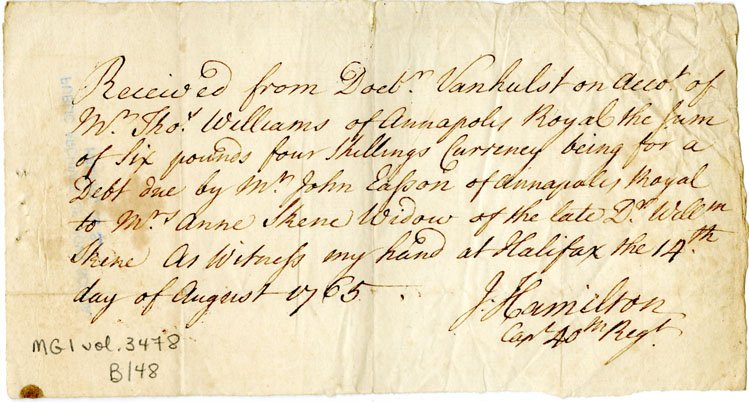 Received from Doctr. Vanhulst on Accot. of
Mr. Thos. Williams of Annapolis Royal the Sum
of Six pounds four Shillings Currency being for a
Debt due by Mr. John Easson of Annapolis Royal
to Mrs. Anne Skene Widow of the late Dr. Wellm
Skene As Witness my hand at Halifax the 14th.
day of August 1765.
J: Hamilton
Capt. 40th Regt.
MG1 vol. 3478
B148